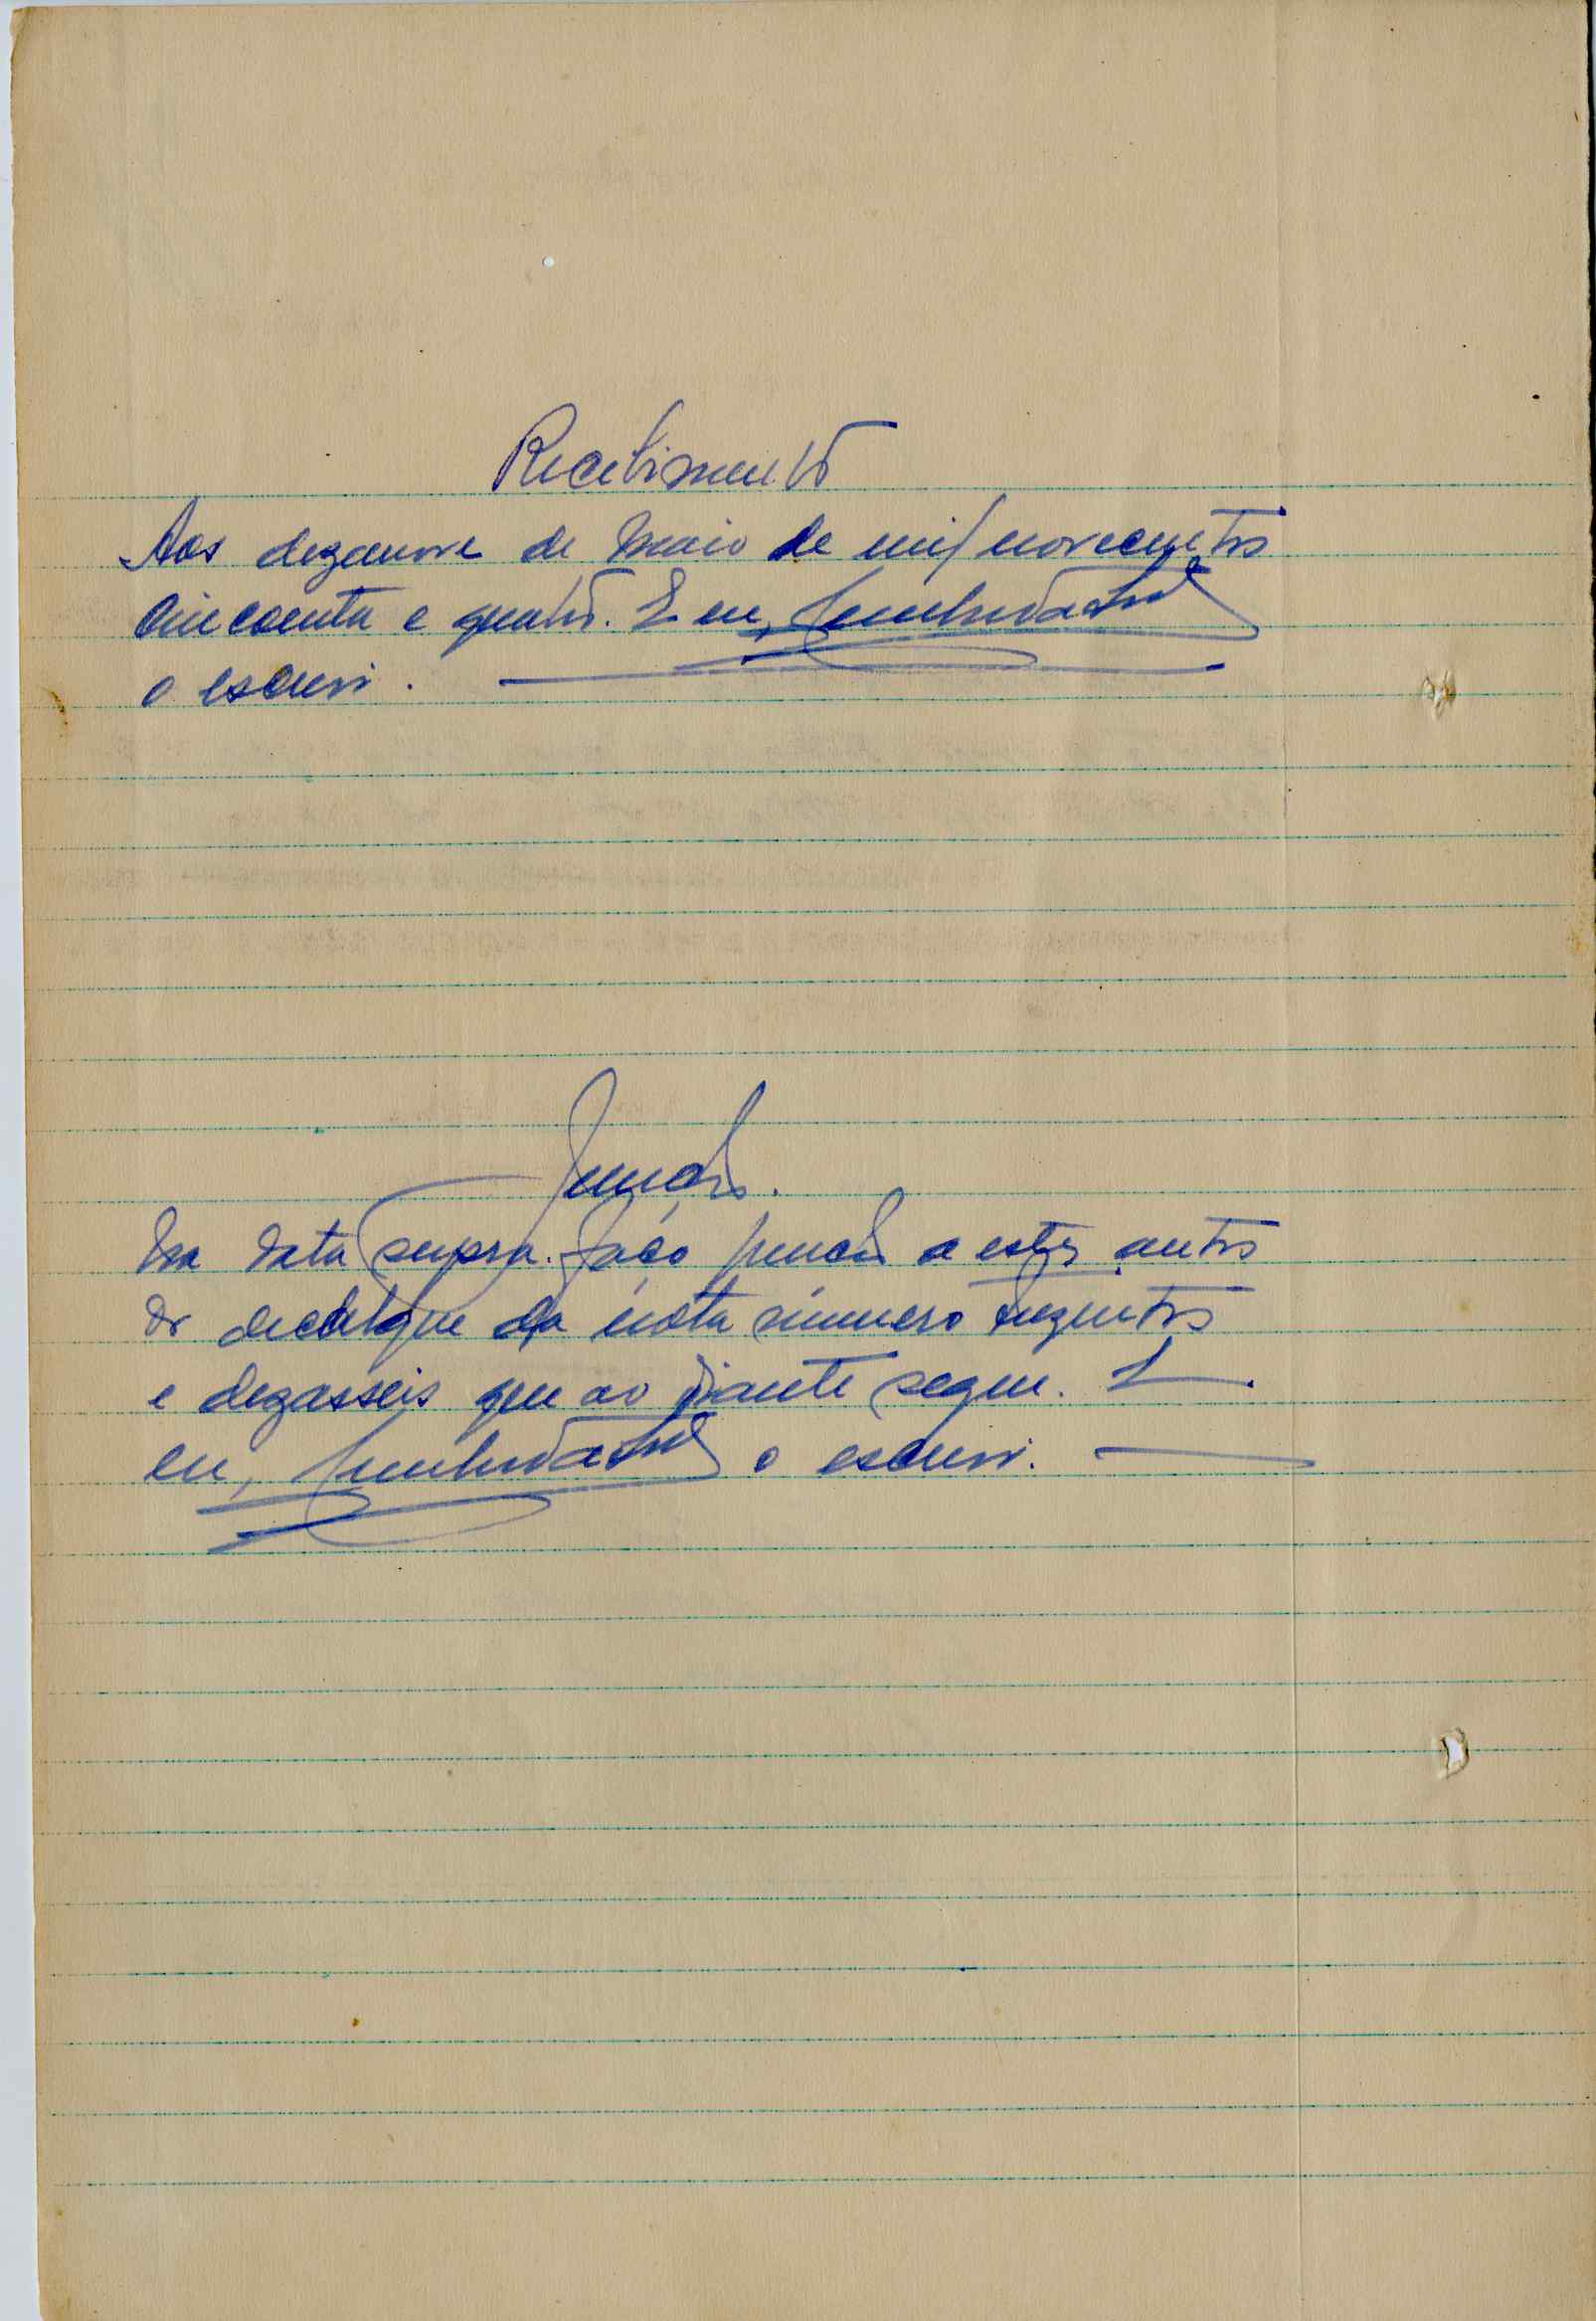 Recebimento
Aos dezanove de Maio de mil novecentos
cincoenta e quatro. E eu,
o escrevi.
Junção.
Na data supra faço junção a estes autos
do decalque da nota número duzentos
e dezasseis que ao diante segue. E
eu, o escrevi.